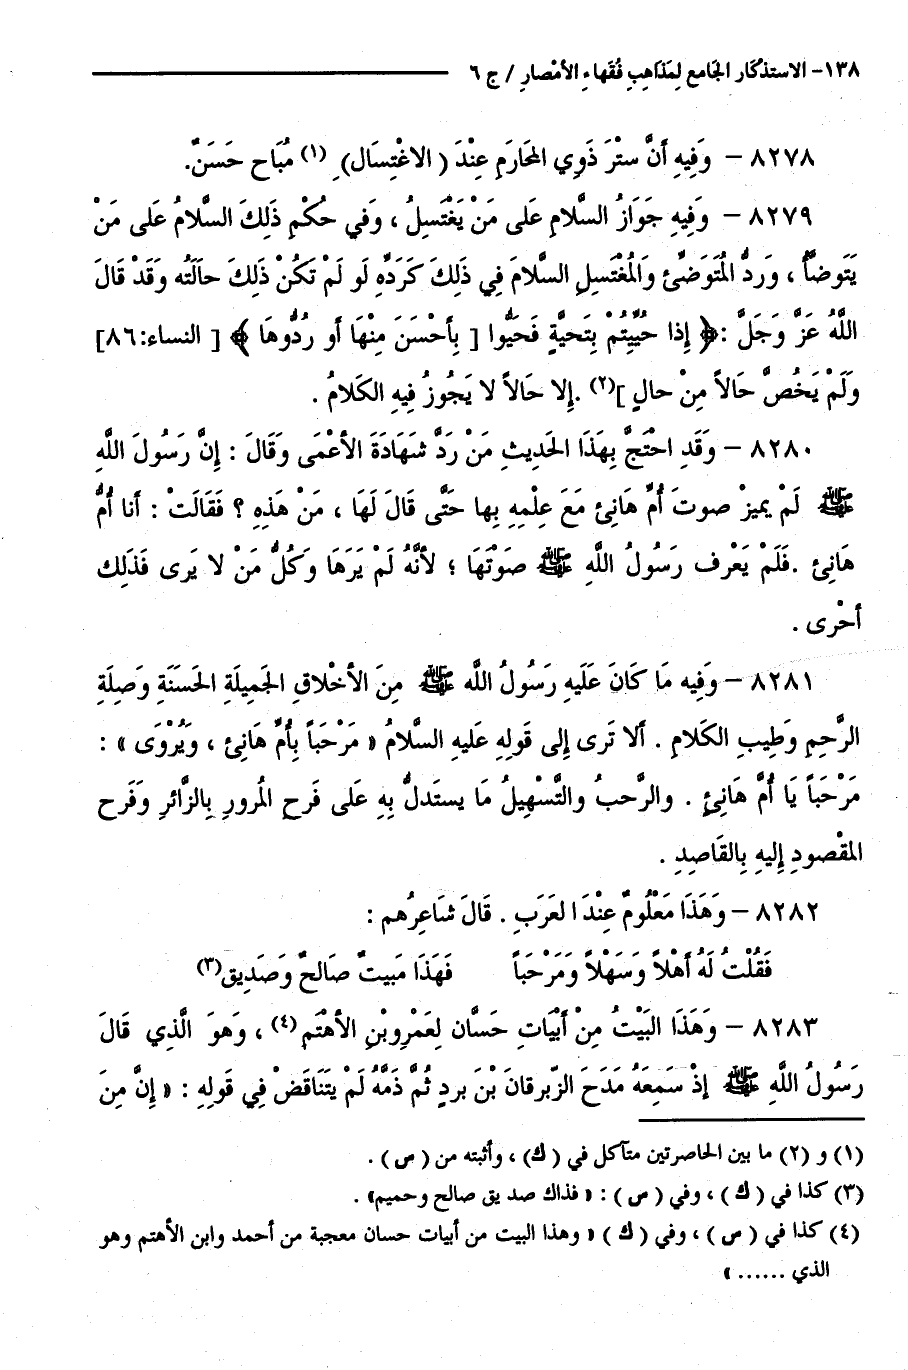 ١٣٨- الاستذكار الجَامع لِمَذَاهِبِ فُقَهاءِ الأمْصارِ / ج ٦
٨٢٧٨ – وَفِيهِ أنَّ سترَ ذَوِي المَحَارَمِ عِنْدَ ( الاغْتِسَال) ِ (١) مُبَاح حَسَنٌ.
٨٢٧٩ – وَفِيهِ جَوَازُ السَّلامِ عَلى مَنْ يَغْتَسِلُ ، وَفي حُكْمِ ذَلِكَ السَّلامُ عَلى مَنْ
يَتَوضَّأُ ، وَردُّ المُتَوَضَّئِ وَالمُغْتَسلِ السَّلامَ فِي ذَلِكَ كَرَدِّهِ لَو لَمْ تَكُنْ ذَلِكَ حَالَتُه وَقَدْ قَالَ
اللَّهُ عَزَّ وَجَلَّ :﴿ إِذا حُيِّيتُمْ بِتَحيَّةٍ فَحَيُّوا [ بِأَحْسَنَ مِنْهَا أو رُدُّوهَا ﴾ [ النساء:٨٦]
وَلَمْ يَخُصَّ حَالاً مِنْ حالٍ ](٢) .إِلا حَالاً لا يَجُوزُ فيهِ الكَلامُ .
٨٢٨٠ – وَقَدِ احْتَجَّ بِهَذَا الحَديثِ مَنْ رَدَّ شَهَادَةَ الأعْمَى وَقَالَ : إِنَّ رَسُولَ اللَّهِ
ﷺ لَمْ يميزْ صوتَ أمَّ هَانِئ مَعَ عِلْمِهِ بِها حَتَّى قَالَ لَهَا ، مَنْ هَذِهِ ؟ فَقَالَتْ : أنا أم
هَانِئ .فَلَمْ يَعْرف رَسُولُ اللَّهِ ﷺ صَوْتَهَا ؛ لأنَّهُ لَمْ يَرَهَا وَكُلُّ مَنْ لا يَرى فَذَلِك
أحْرى .
٨٢٨١ – وَفِيه مَا كَانَ عَلَيهِ رَسُولُ اللَّه ﷺ مِنَ الأخْلاقِ الجَمِيلَةِ الحَسَنَةِ وَصِلَةِ
الرَّحِمِ وَطِيبِ الكَلامِ . ألا تَرى إِلى قَولِهِ عَليهِ السَّلامُ « مَرْحَباً بِأمِّ هَانِئ ، وَيُرْوَى » :
مَرْحَباً يَا أُمَّ هَانِئٍ . والرَّحبُ والتَّسْهِيلُ مَا يستَدلُّ بِهِ عَلى فَرحِ المُرورِ بِالزَّائرِ وَفَرح
المَقْصودِ إِليهِ بِالقَاصِدِ .
٨٢٨٢ – وَهَذَا مَعْلُومٌ عِنْدَ العَرَبِ . قَالَ شَاعِرُهم :
فَقُلْتُ لَهُ أهْلاً وَسَهْلاً وَمَرْحَباً فَهَذَا مَبيتٌ صَالحٌ وَصَدِيق(٣)
٨٢٨٣ – وَهَذَا البَيْتُ مِنْ أبْيَاتِ حَسَّان لِعَمْرِوبْنِ الأهْتَمِ(٤) ، وَهوَ الَّذِي قَالَ
رَسُولُ اللَّهِ ﷺ إِذْ سَمِعَهُ مَدَحَ الزّبرقانَ بْنَ بردٍ ثُمَّ ذَمَّهُ لَمْ يَتَنَاقَضْ فِي قَولِهِ : « إِنَّ مِنَ
(١) و (٢) ما بين الحاصرتين متآكل في ( ك) ، وأثبته من ( ص) .
(٣) كذا في ( ك) ، وفي ( ص) : « فذاك صديق صالح وحميم» .
(٤) كذا في ( ص) ، وفي ( ك) « وهذا البيت من أبيات حسان معجبة من أحمد وابن الأهتم وهو
الذي ...... »